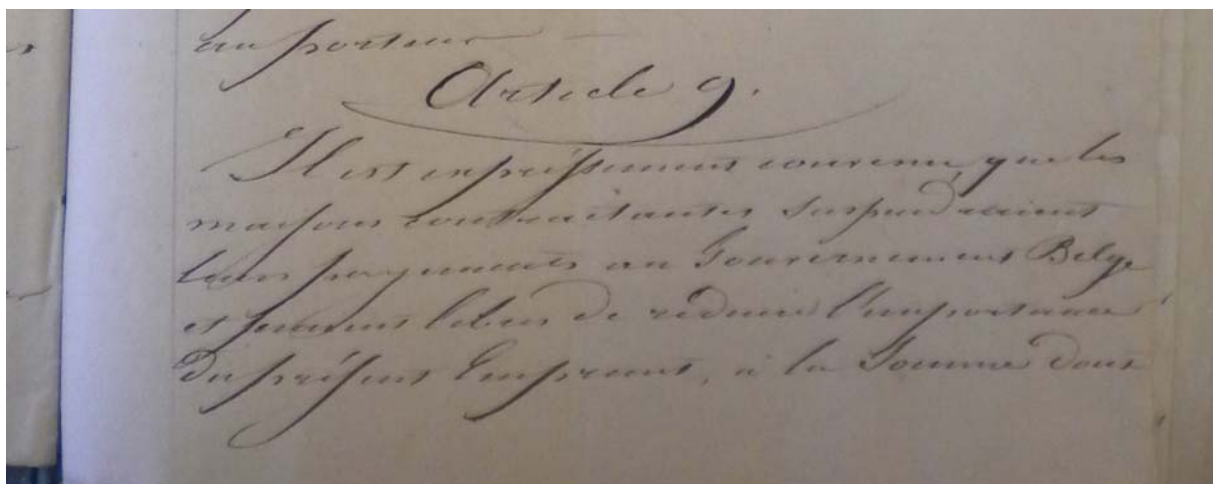 au porteur
Article 9.
Il est expressément convenu, que les
maisons contractantes suspendraient
leurs payements au Gouvernement Belge
et seraient libres de réduire l'importance
du présent Emprunt, à la Somme dont